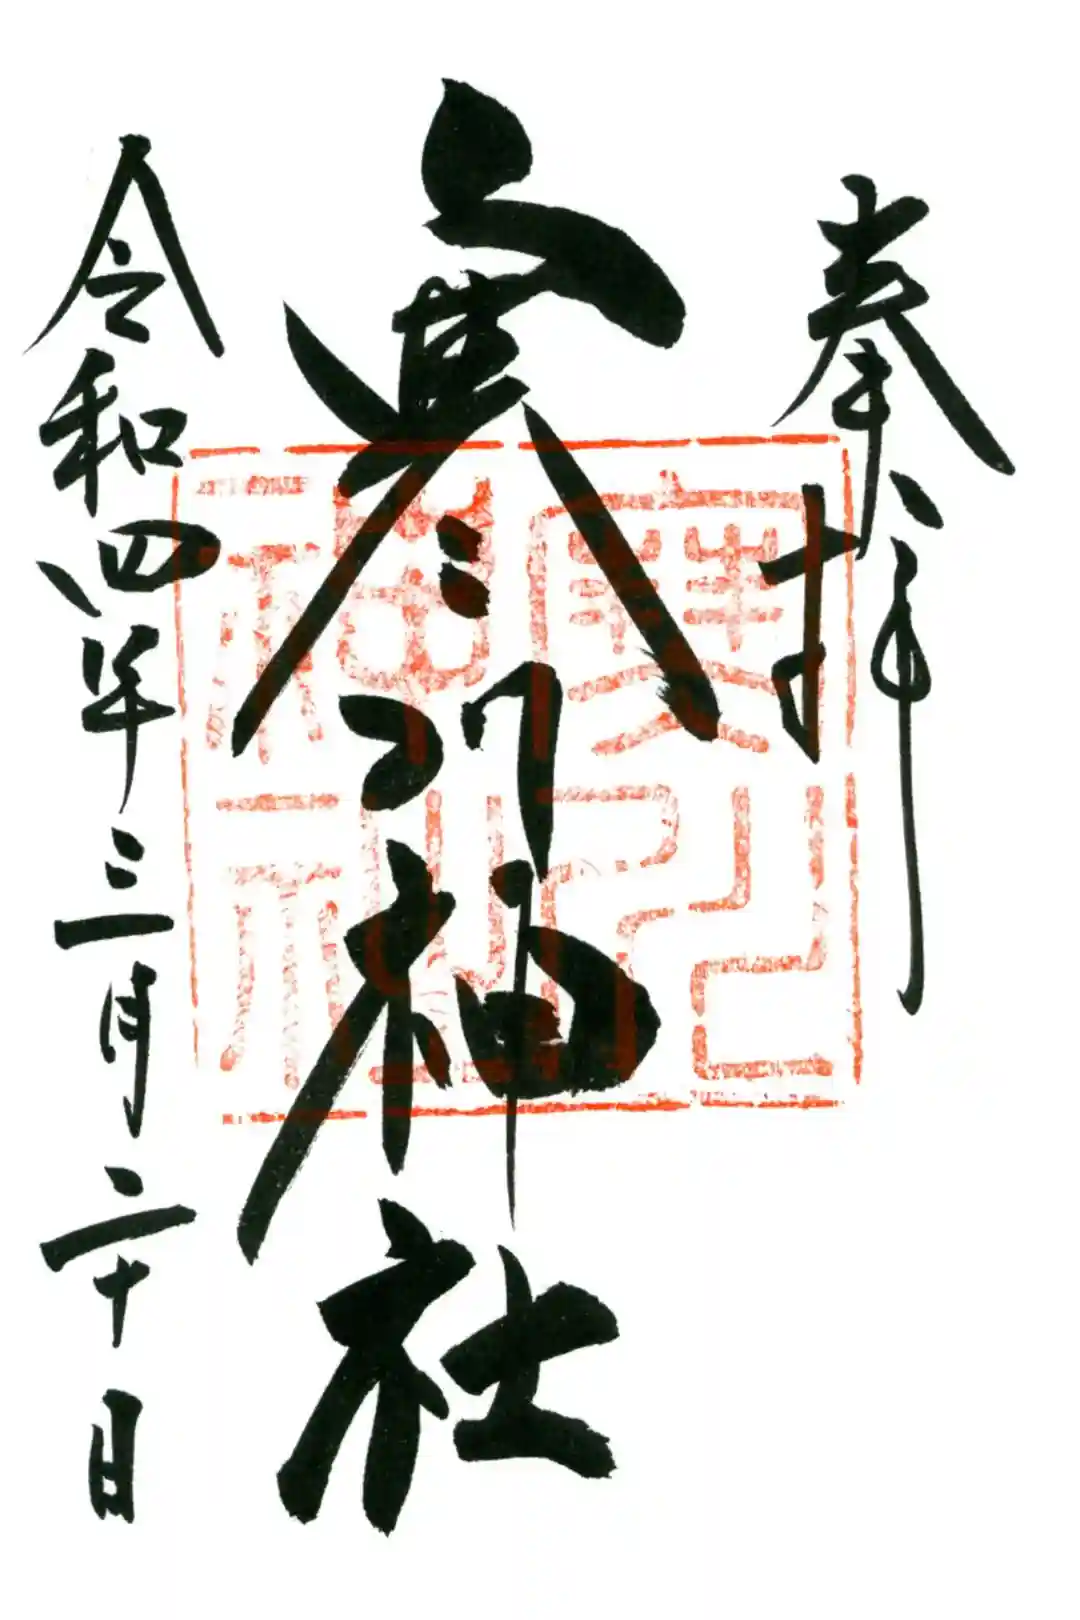 奉拝
寒川神社
令和四年三月二十日
寒川
神社